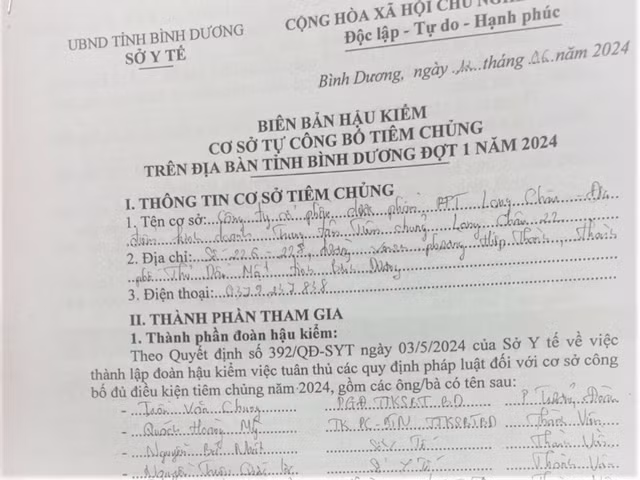 UBND TỈNH BÌNH DƯƠNG
SỞ Y TẾ
CỘNG HÒA XÃ HỘI CHỦ
Độc lập - Tự do - Hạnh phúc
Bình Dương, ngày tháng 06 năm 2024
BIÊN BẢN HẬU KIỂM
CƠ SỞ TỰ CÔNG BỐ TIÊM CHỦNG
TRÊN ĐỊA BÀN TỈNH BÌNH DƯƠNG ĐỢT 1 NĂM 2024
I. THÔNG TIN CƠ SỞ TIÊM CHỦNG
1. Tên cơ sở: Công ty cổ phần dược phẩm FPT Long Châu - Địa
điểm kinh doanh Trung tâm Tiêm chủng Long Châu 22
2. Địa chỉ: Số 226 - 228, đường phường Hiệp Thành, Thành
phố Thủ Dầu Một tỉnh Bình Dương
3. Điện thoại:
II. THÀNH PHẦN THAM GIA
1. Thành phần đoàn hậu kiểm:
Theo Quyết định số 392/QĐ-SYT ngày 03/5/2024 của Sở Y tế về việc
thành lập đoàn hậu kiểm việc tuân thủ các quy định pháp luật đối với cơ sở công
bố đủ điều kiện tiêm chủng năm 2024, gồm các ông/bà có tên sau:
- Trần Văn Chung PGĐ TTKSBT BD P. Trưởng Đoàn
- Quách Hoàng Mỹ TK PC-BTN TTKSBTBD Thành Viên
- Nguyễn Sở Y Tế Thành Viên
- Nguyễn Sở Y Tế Thành Viên